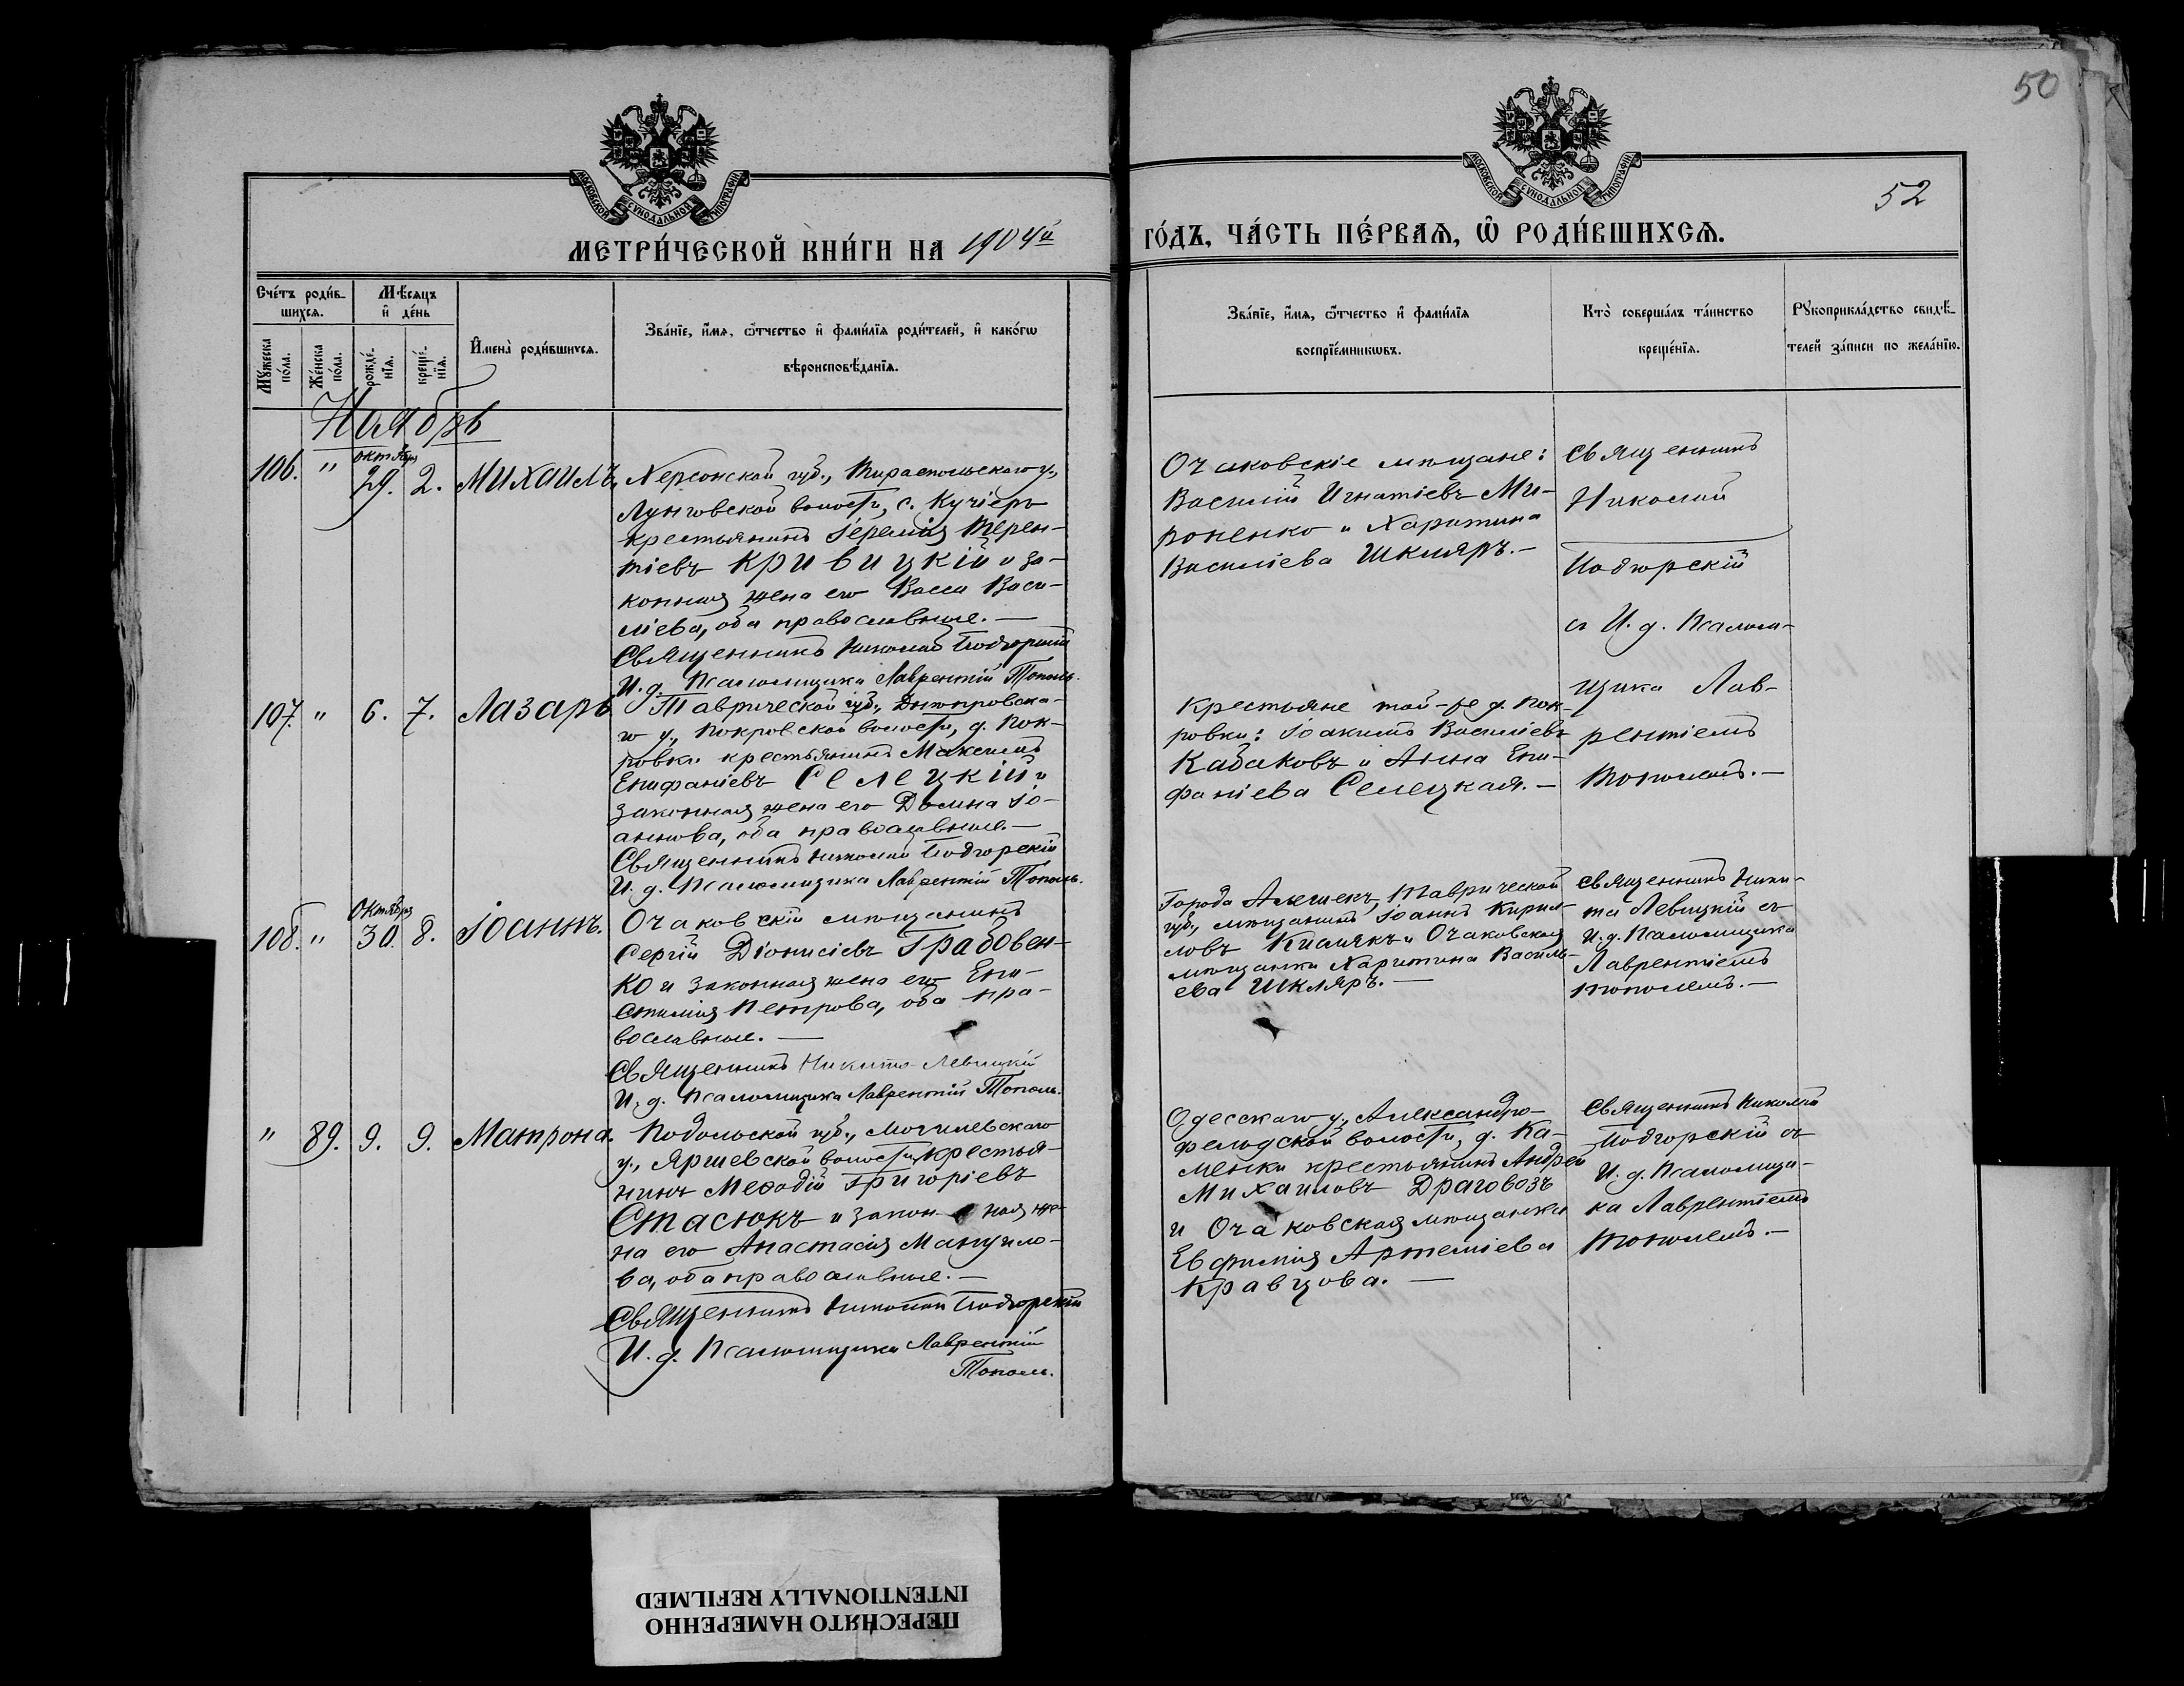 50
52
МОСКОВСКОЙ СѴНОДАЛЬНОЙ ТИПОГРАФІИ
МЕТРИ́ЧЕСКОЙ КНИ́ГИ НА 1904й
МОСКОВСКОЙ СѴНОДАЛЬНОЙ ТИПОГРАФІИ
ГО́ДЪ, ЧА́СТЬ ПЕ́РВАѦ, Ѿ РОДИ́ВШИХСѦ.
Сче́тъ роди́в-
шихсѧ.
Мѣ́сѧцъ
и҆ де́нь
Мꙋ́жеска по́ла.
Же́нска по́ла.
рожде́-
нїѧ.
креще́-
нїѧ.
И҆мена̀ роди́вшихсѧ.
Зва́нїе, и҆́мѧ, ѻ҆́тчество и҆ фами́лїѧ роди́телей, и҆ како́гѡ
вѣроисповѣ́данїѧ.
Зва́нїе, и҆́мѧ, ѻ҆́тчество и҆ фами́лїѧ
воспрїе́мникѡвъ.
Кто̀ соверша́лъ та́инство
креще́нїѧ.
Рꙋкоприкла́дство свидѣ́-
телей за́писи по жела́нїю.
Ноябрь
106. " октября 29. 2. Михаилъ,
Херсонской губ., Тираспольскаго у.,
Лунговской волости, с. Кучіеръ
крестьянинъ Іеремія Терен-
тіевъ Кривицкій и за-
конная жена его Васса Васи-
ліева, оба православные. —
Священникъ Николай Подгорскій
И. д. Псаломщика Лаврентій Тополь.
Очаковскіе мѣщане:
Василій Игнатіевъ Ми-
роненко и Харитина
Василіева Шкляръ. —
Священникъ
Николай
Подгорскій
съ И. д. Псалом-
щика Лав-
рентіемъ
Тополемъ. —
107. " 6. 7. Лазарь
Таврической губ., Днѣпровска-
го у., Покровской волости, д. Пок-
ровки крестьянинъ Максимъ
Епифаніевъ Селецкій и
законная жена его Домна Іо-
аннова, оба православные. —
Священникъ Николай Подгорскій
И. д. Псаломщика Лаврентій Тополь.
Крестьяне той-же д. Пок-
ровки: Іоакимъ Василіевъ
Кабаковъ и Анна Епи-
фаніева Селецкая. —
108. " Октября 30. 8. Іоаннъ.
Очаковскій мѣщанинъ
Сергій Діонисіевъ Грабовен-
ко и законная жена его Епи-
стимія Петрова, оба пра-
вославные. —
Священникъ Никита Левицкій
И. д. Псаломщика Лаврентій Тополь.
Города Алешекъ, Таврической
губ., мѣщанинъ Іоаннъ Кирил-
ловъ Кислякъ и Очаковская
мѣщанка Харитина Василь-
ева Шкляръ. —
Священникъ Ники-
та Левицкій съ
И. д. Псаломщика
Лаврентіемъ
Тополемъ. —
" 89. 9. 9. Матрона.
Подольской губ., Могилевскаго
у., Яришевской волости, крестья-
нинъ Меѳодій Григоріевъ
Стасюкъ и закон-ная же-
на его Анастасія Мануило-
ва, оба православные. —
Священникъ Николай Подгорскій
И. д. Псаломщика Лаврентій
Тополь.
Одесскаго у., Александро-
фельдской волости, д. Ка-
менки крестьянинъ Андрей
Михаиловъ Драговозъ
и Очаковская мѣщанка
Евфимія Артеміева
Кравцова. —
Священникъ Николай
Подгорскій съ
И. д. Псаломщи-
ка Лаврентіемъ
Тополемъ. —
ПЕРЕСНЯТО НАМЕРЕННО
INTENTIONALLY REFILMED